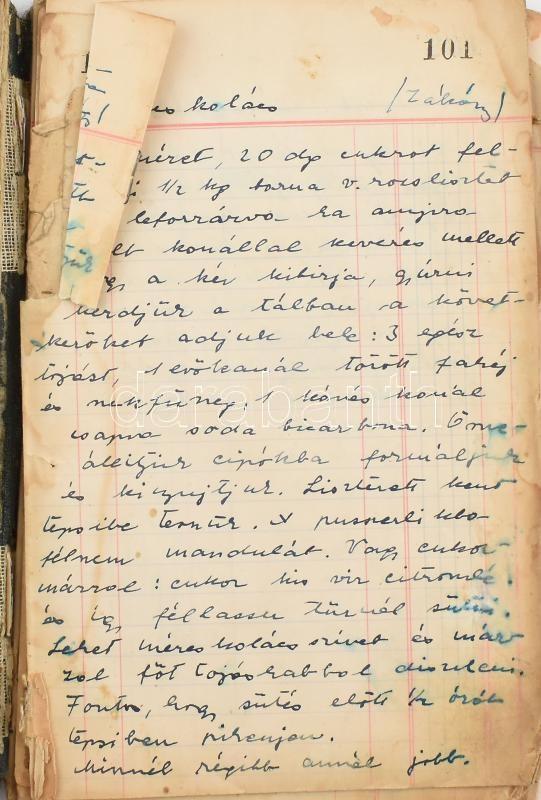 101
es kolács /Zákány/
mézet, 20 dg cukrot fel-
1/2 kg barna v. rozslisztet
leforrázva ha annyira
kanállal keverés mellett
a kéz kibirja, gyúrni
kezdjük a tálban a követ-
kezőket adjuk bele: 3 egész
tojást, 1 evőkanál törött fahéj
és szekfűszeg, 1 kávés kanál
csapva soda bicarbona. Össze-
állitjuk cipókba formáljuk
és kinyujtjuk. Lisztezett kent
tepsibe teszük. A puszerlikbe
félszem mandulát. Vagy cukor-
mázzal: cukor kis viz citromlé.
és igy féllassu tűznél sütni.
Lehet mézeskolács szivet és máz-
zal főt tojáshabbal disziteni.
Fontos, hogy sütés előtt 1/2 órát
tepsiben pihenjen.
Minnél régibb annál jobb.
darabanth